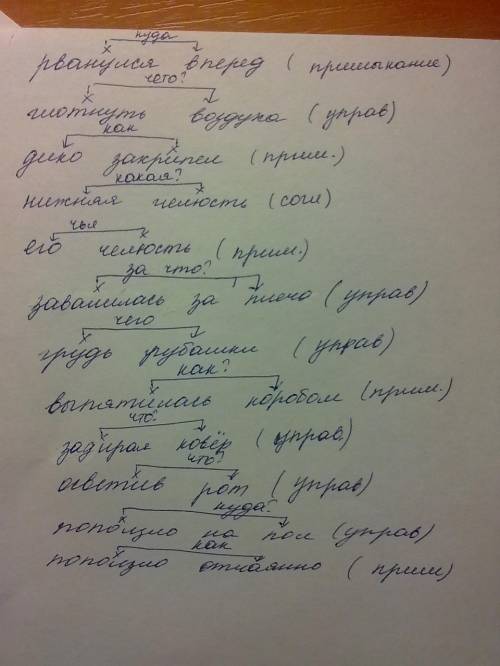 куда
рванулся вперед (примыкание)
чего?
глотнуть воздуха (управ)
как
дико захрипел (прим.)
какая?
нижняя челюсть (согл)
чья
его челюсть (прим.)
за что?
завалилась за плечо (управ)
чего
грудь рубашки (управ)
как?
выпятилась коробом (прим.)
что?
задирая ковёр (управ)
что?
осветив рот (управ)
куда?
на пол (управ)
как
отчаянно (прим)